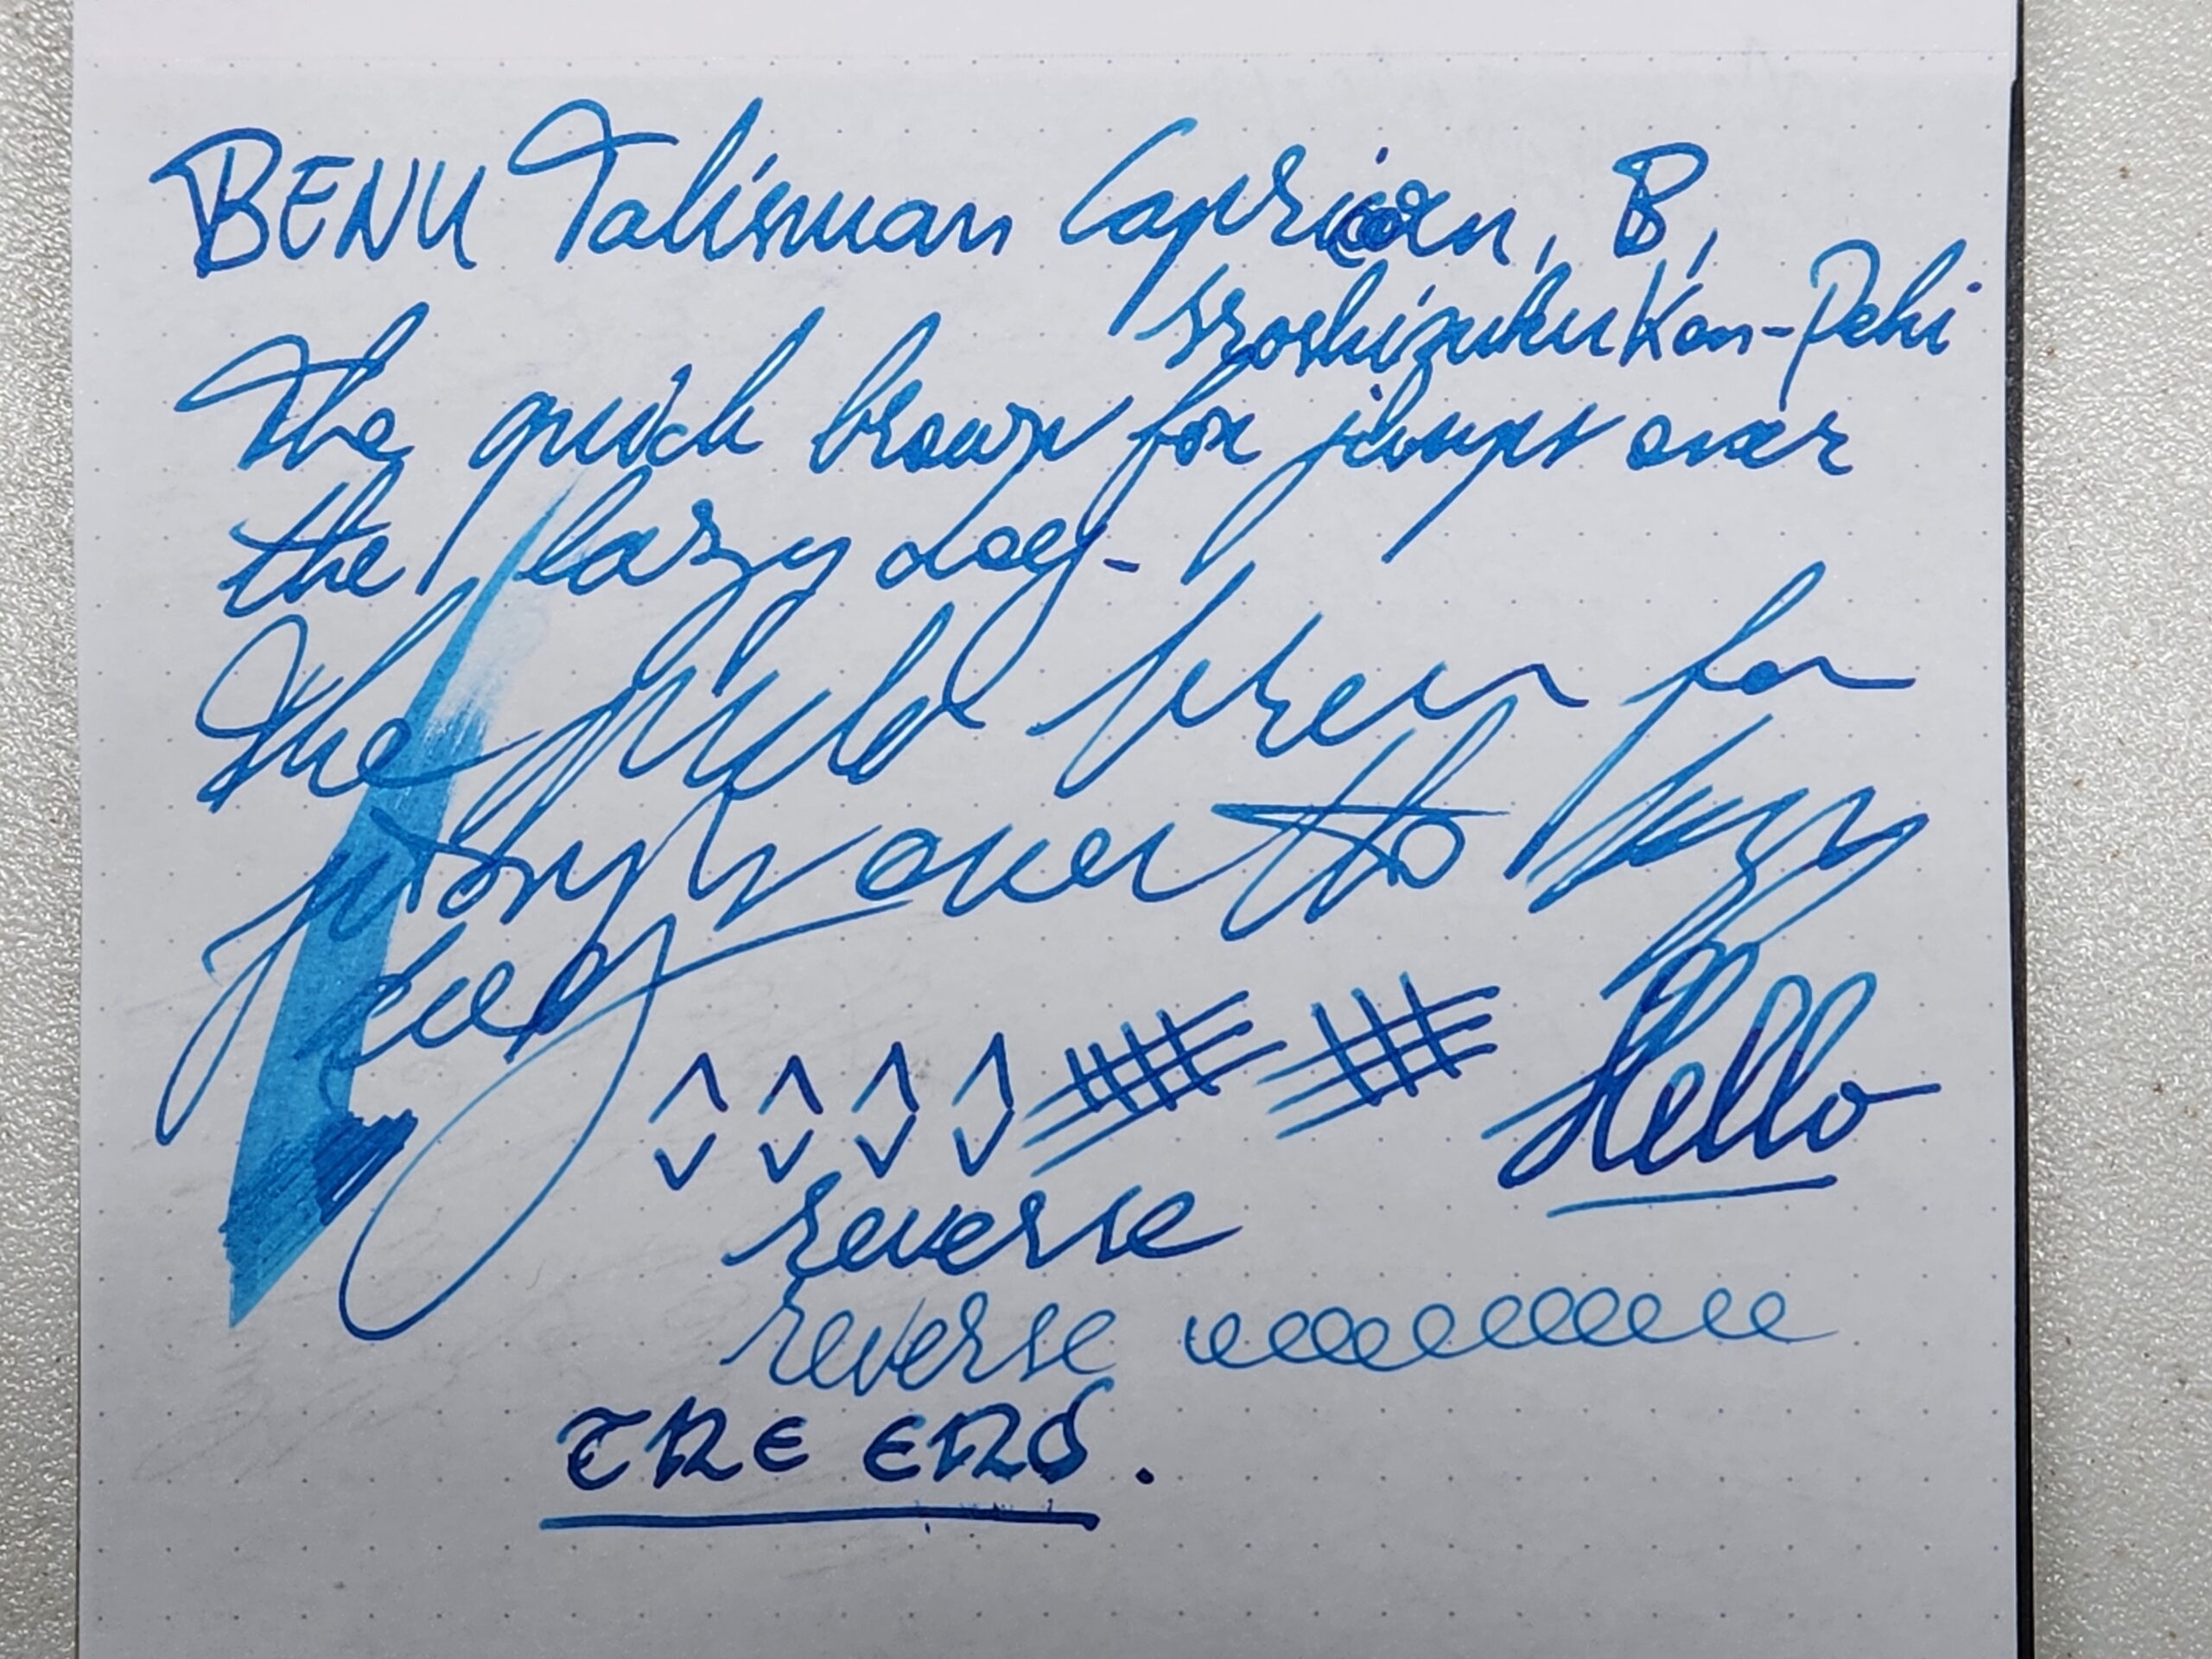 BENU Talisman Capricorn, B,
Iroshizuku Kon-Peki
The quick brown fox jumps over
the lazy dog.
The quick brown fox
jumps over the lazy
dog
Hello
reverse
reverse
THE END.